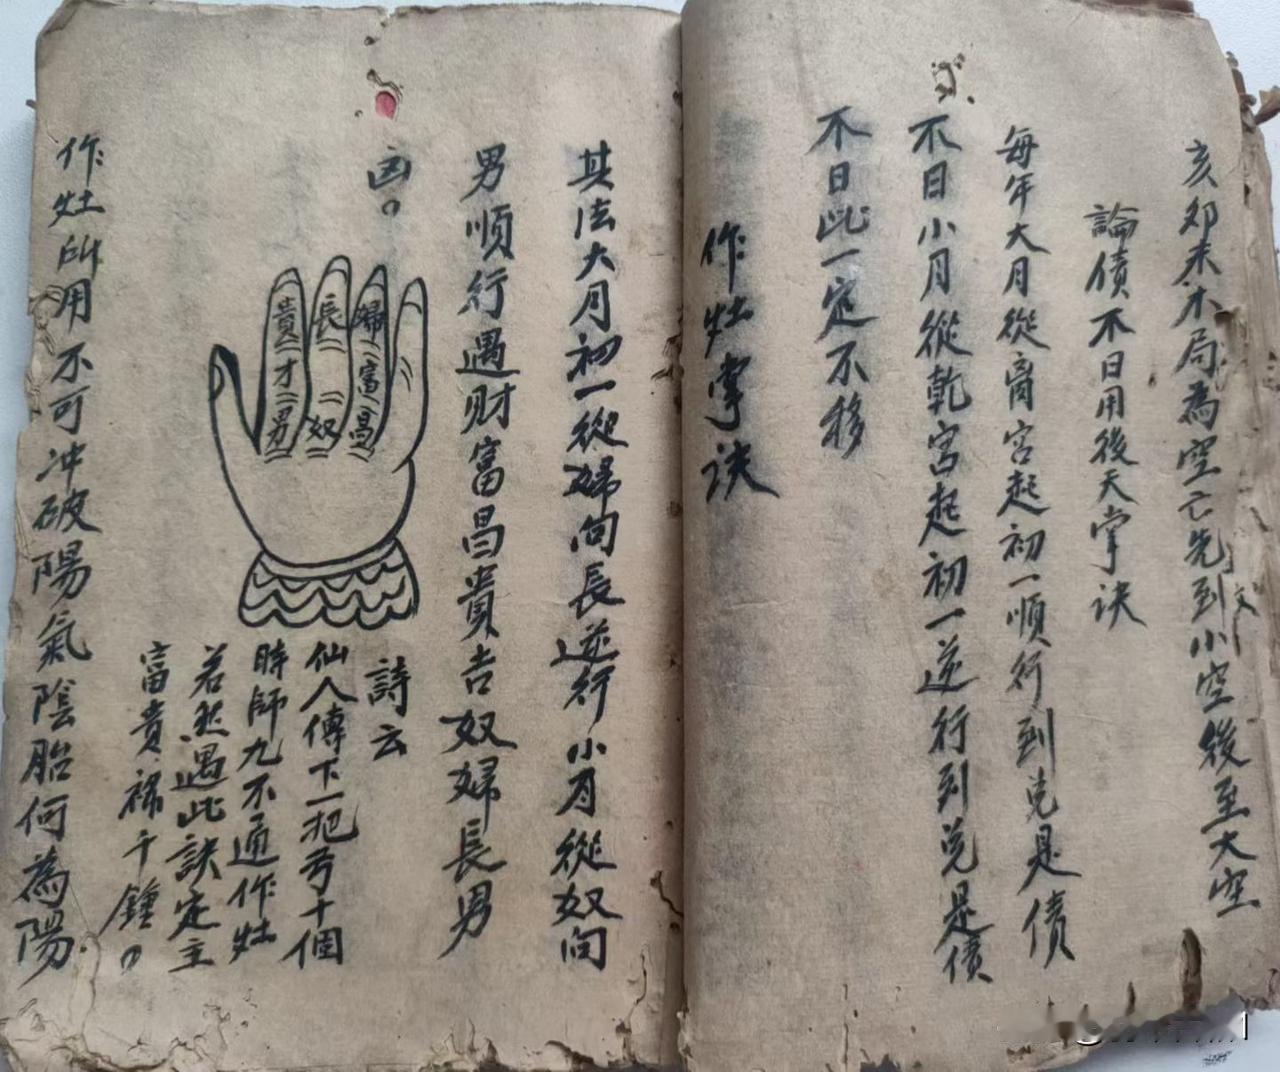 亥卯未木局為空亡先到小空後至大空
論債不日用後天掌訣
每年大月從离宮起初一順行到兑是債
不日小月從乾宮起初一逆行到兑是債
不日此一定不移
作灶掌訣
其法大月初一從婦向長逆行小月從奴向
男順行遇财富昌貴吉奴婦長男
凶。
貴 才 男
長 奴
婦 富 昌
詩云
仙人傳下一把弓十個
時師九不通作灶
若然遇此訣定主
富貴禄千鍾。
作灶所用不可冲破陽氣陰胎何為陽